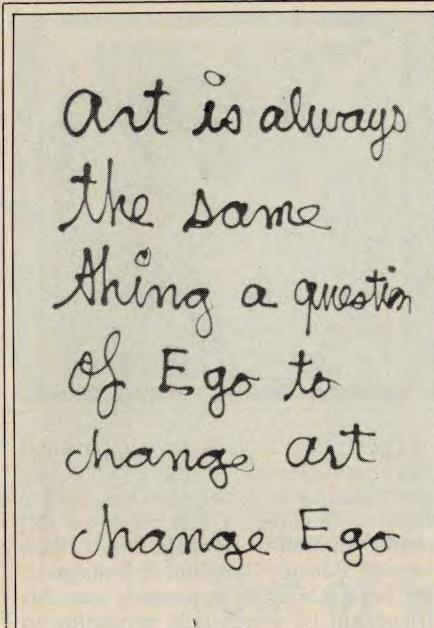 Art is always
the same
thing a question
of Ego to
change art
change Ego